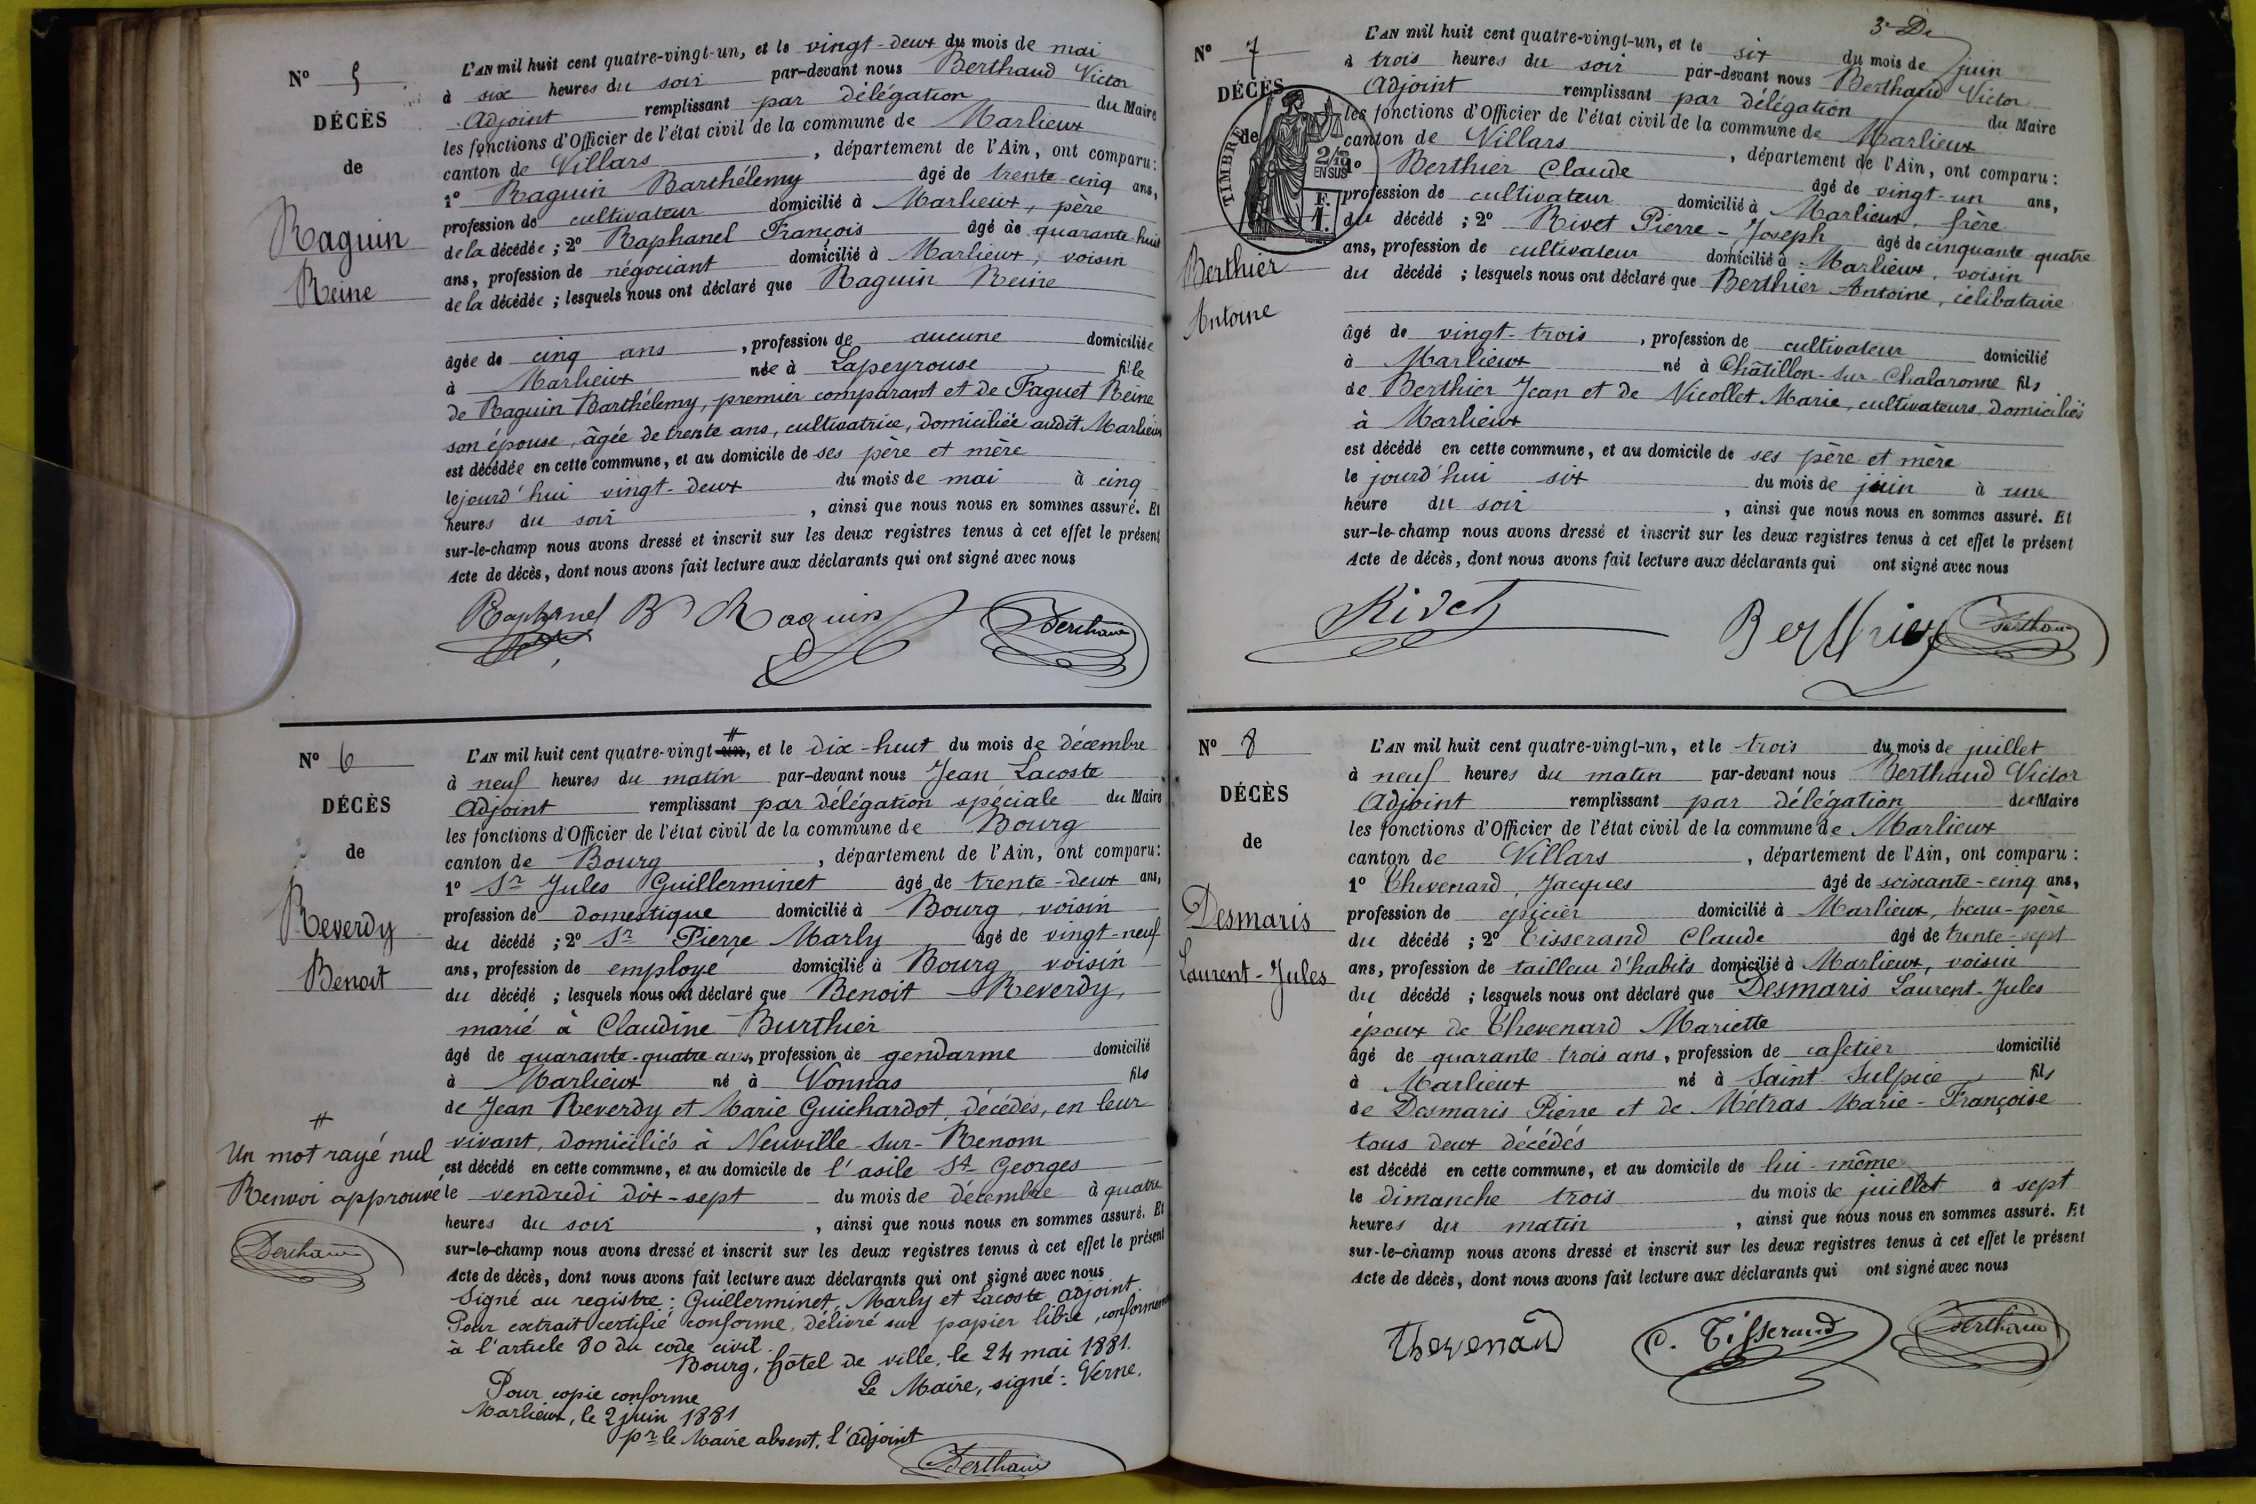 N° 5
DÉCÈS
de
Raguin
Reine
L'AN mil huit cent quatre-vingt-un, et le vingt-deux du mois de mai
à six heures du soir par-devant nous Berthaud Victor
Adjoint remplissant par délégation du Maire
les fonctions d'Officier de l'état civil de la commune de Marlieux
canton de Villars, département de l'Ain, ont comparu:
1° Raguin Barthélemy âgé de trente-cinq ans,
profession de cultivateur domicilié à Marlieux, père
de la décédée; 2° Raphanel François âgé de quarante huit
ans, profession de négociant domicilié à Marlieux, voisin
de la décédée; lesquels nous ont déclaré que Raguin Reine
âgée de cinq ans, profession de aucune domiciliée
à Marlieux née à Lapeyrouse fille
de Raguin Barthélemy, premier comparant et de Faguet Reine
son épouse, âgée de trente ans, cultivatrice, domiciliée audit Marlieux
est décédée en cette commune, et au domicile de ses père et mère
le jourd'hui vingt-deux du mois de mai à cinq
heures du soir, ainsi que nous nous en sommes assuré. Et
sur-le-champ nous avons dressé et inscrit sur les deux registres tenus à cet effet le présent
Acte de décès, dont nous avons fait lecture aux déclarants qui ont signé avec nous
Raphanel B Raguin Berthaud
N° 6
DÉCÈS
de
Reverdy
Benoit
#
Un mot rayé nul
Renvoi approuvé
Berthaud
L'AN mil huit cent quatre-vingt # un, et le dix-huit du mois de décembre
à neuf heures du matin par-devant nous Jean Lacoste
Adjoint remplissant par délégation spéciale du Maire
les fonctions d'Officier de l'état civil de la commune de Bourg
canton de Bourg, département de l'Ain, ont comparu:
1° Sr Jules Guillerminet âgé de trente-deux ans,
profession de domestique domicilié à Bourg, voisin
du décédé; 2° Sr Pierre Marly âgé de vingt-neuf
ans, profession de employé domicilié à Bourg voisin
du décédé; lesquels nous ont déclaré que Benoit Reverdy,
marié à Claudine Burthier
âgé de quarante-quatre ans, profession de gendarme domicilié
à Marlieux né à Vonnas fils
de Jean Reverdy et Marie Guichardot, décédés, en leur
vivant, domiciliés à Neuville-sur-Renom
est décédé en cette commune, et au domicile de l'asile St Georges
le vendredi dix-sept du mois de décembre à quatre
heures du soir, ainsi que nous nous en sommes assuré. Et
sur-le-champ nous avons dressé et inscrit sur les deux registres tenus à cet effet le présent
Acte de décès, dont nous avons fait lecture aux déclarants qui ont signé avec nous
Signé au registre: Guillerminet, Marly et Lacoste adjoint.
Pour extrait certifié conforme, délivré sur papier libre, conformément
à l'article 80 du code civil.
Bourg, hôtel de ville, le 24 mai 1881.
Le Maire, signé: Verne.
Pour copie conforme
Marlieux, le 2 juin 1881
pr le Maire absent, l'adjoint
Berthaud
3e De
N° 7
DÉCÈS
de
TIMBRE
2/10 EN SUS
1 F.
Berthier
Antoine
L'AN mil huit cent quatre-vingt-un, et le six du mois de juin
à trois heures du soir par-devant nous Berthaud Victor
Adjoint remplissant par délégation du Maire
les fonctions d'Officier de l'état civil de la commune de Marlieux
canton de Villars, département de l'Ain, ont comparu:
1° Berthier Claude âgé de vingt-un ans,
profession de cultivateur domicilié à Marlieux, frère
du décédé; 2° Rivet Pierre-Joseph âgé de cinquante quatre
ans, profession de cultivateur domicilié à Marlieux, voisin
du décédé; lesquels nous ont déclaré que Berthier Antoine, célibataire
âgé de vingt-trois, profession de cultivateur domicilié
à Marlieux né à Châtillon-sur-Chalaronne fils
de Berthier Jean et de Nicollet Marie, cultivateurs, domiciliés
à Marlieux
est décédé en cette commune, et au domicile de ses père et mère
le jourd'hui six du mois de juin à une
heure du soir, ainsi que nous nous en sommes assuré. Et
sur-le-champ nous avons dressé et inscrit sur les deux registres tenus à cet effet le présent
Acte de décès, dont nous avons fait lecture aux déclarants qui ont signé avec nous
Rivet Berthier Berthaud
N° 8
DÉCÈS
de
Desmaris
Laurent-Jules
L'AN mil huit cent quatre-vingt-un, et le trois du mois de juillet
à neuf heures du matin par-devant nous Berthaud Victor
Adjoint remplissant par délégation du Maire
les fonctions d'Officier de l'état civil de la commune de Marlieux
canton de Villars, département de l'Ain, ont comparu:
1° Thevenard, Jacques âgé de soixante-cinq ans,
profession de épicier domicilié à Marlieux, beau-père
du décédé; 2° Tisserand Claude âgé de trente-sept
ans, profession de tailleur d'habits domicilié à Marlieux, voisin
du décédé; lesquels nous ont déclaré que Desmaris Laurent-Jules
époux de Thevenard Mariette
âgé de quarante trois ans, profession de cafetier domicilié
à Marlieux né à Saint-Sulpice fils
de Desmaris Pierre et de Métras Marie-Françoise
tous deux décédés
est décédé en cette commune, et au domicile de lui-même
le dimanche trois du mois de juillet à sept
heures du matin, ainsi que nous nous en sommes assuré. Et
sur-le-champ nous avons dressé et inscrit sur les deux registres tenus à cet effet le présent
Acte de décès, dont nous avons fait lecture aux déclarants qui ont signé avec nous
Thevenard C. Tisserand Berthaud